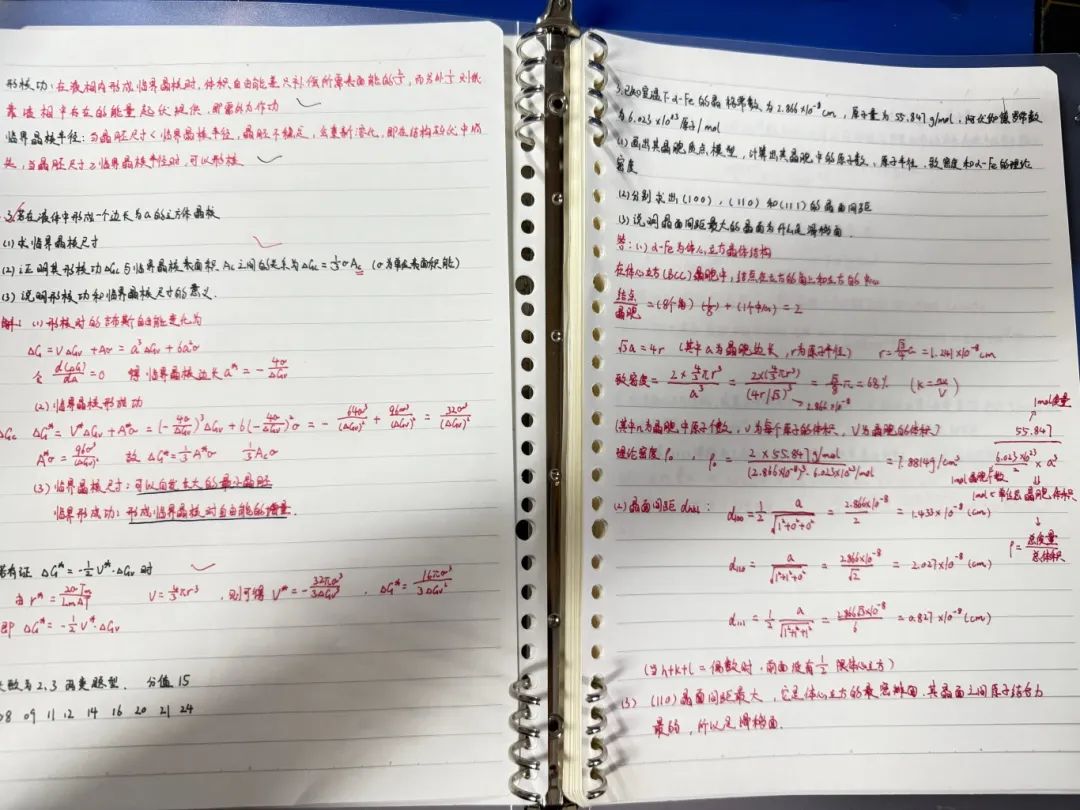 形核功:在液相内形成临界晶核时,体积自由能差只补偿所需表面能的2/3,而另外1/3则依
靠液相中存在的能量起伏提供,即需外力作功
临界晶核半径:当晶胚尺寸<临界晶核半径,晶胚不稳定,会重新溶化,即在结构起伏中消
失,当晶胚尺寸≥临界晶核半径时,可以形核
3.若在液体中形成一个边长为a的立方体晶核
(1)求临界晶核尺寸
(2)证明其形核功ΔGc与临界晶核表面积Ac之间的关系为ΔGc=1/3σAc (σ为单位表面积能)
(3)说明形核功和临界晶核尺寸的意义.
解:(1)形核时的吉布斯自由能变化为
ΔG=VΔGv+Aσ=a³ΔGv+6a²σ
令 d(ΔG)/da=0 得临界晶核边长a*=-4σ/ΔGv
(2)临界晶核形成功
ΔGc ΔG*=V*ΔGv+A*σ=(-4σ/ΔGv)³ΔGv+6(-4σ/ΔGv)²σ=-64σ³/(ΔGv)²+96σ³/(ΔGv)²=32σ³/(ΔGv)²
A*σ=96σ³/(ΔGv)² 故ΔG*=1/3A*σ 1/3Acσ
(3)临界晶核尺寸:可以自发长大的最小晶胚
临界形成功:形成临界晶核时自由能的增量.
若有证 ΔG*=-1/2V*·ΔGv时
由r*=2σTm/LmΔT V=4/3πr³ ,则可得V*=-32πσ³/3ΔGv³ ,ΔG*=16πσ³/3ΔGv²
即ΔG*=-1/2V*·ΔGv
数为2,3两类题型. 分值15
08 09 11 12 14 16 20 21 24
3.已知室温下α-Fe的晶格常数为2.866×10⁻⁸cm,原子量为55.847g/mol,阿伏加德罗常数
为6.023×10²³原子/mol
(1)画出其晶胞质点模型,计算出其晶胞中的原子数、原子半径、致密度和α-Fe的理论
密度
(2)分别求出(100),(110)和(111)的晶面间距
(3)说明晶面间距最大的晶面为什么是滑移面.
答:(1)α-Fe为体心立方晶体结构
在体心立方(BCC)晶胞中,结点在立方的角上和立方的中心
结点/晶胞=(8个角)(1/8)+(1个中心)=2
√3a=4r (其中a为晶胞边长,r为原子半径) r=√3/4a=1.241×10⁻⁸cm
致密度=2×4/3πr³/a³=2×(4/3πr³)/(4r/√3)³=√3/8π=68% (K=nv/V)
2.866×10⁻⁸
(其中n为晶胞中原子个数,v为每个原子的体积,V为晶胞的体积)
理论密度ρ₀ , ρ₀=2×55.847g/mol/(2.866×10⁻⁸)³·6.023×10²³/mol=7.8814g/cm³
1mol质量
55.847/6.023×10²³/2×a³
1mol晶胞个数
ρ=总质量/总体积
(2)晶面间距dhkl: d₁₀₀=1/2 a/√1²+0²+0²=2.866×10⁻⁸/2=1.433×10⁻⁸(cm)
d₁₁₀=a/√1²+1²+0²=2.866×10⁻⁸/√2=2.027×10⁻⁸(cm)
d₁₁₁=1/2 a/√1²+1²+1²=2.866√3×10⁻⁸/6=0.827×10⁻⁸(cm)
(当h+k+l=偶数时,前面没有1/2 限体心立方)
(3) (110)晶面间距最大,它是体心立方的最密排面,其晶面之间原子结合力
最弱,所以是滑移面.